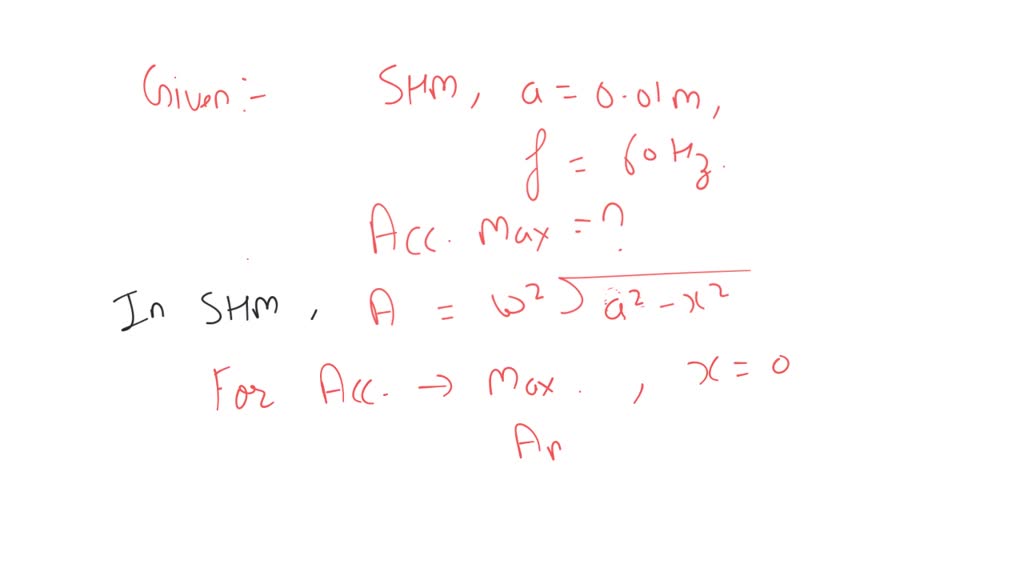 Given:- SHM, a = 0.01m,
f = 60 Hz.
Acc. Max = ?
In SHM, A = ω² √a² - x²
For Acc. → Max. , x = 0
Am